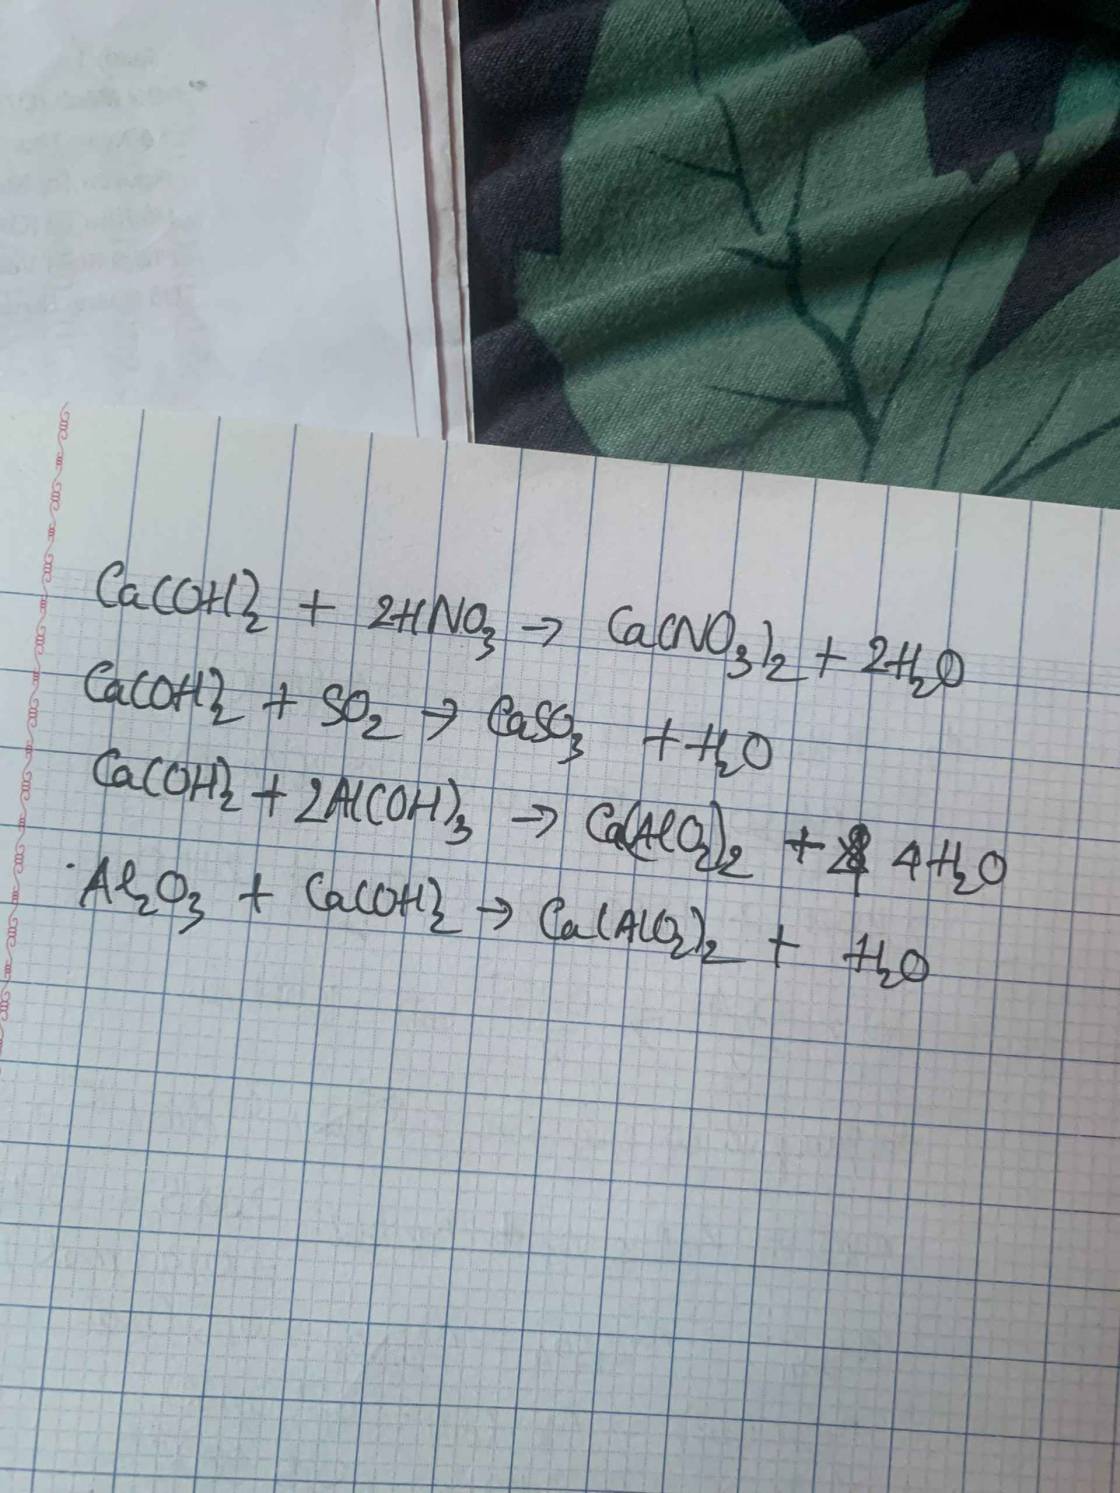 Ca(OH)2 + 2HNO3 → Ca(NO3)2 + 2H2O
Ca(OH)2 + SO2 → CaSO3 + H2O
Ca(OH)2 + 2Al(OH)3 → Ca(AlO2)2 + 4H2O
Al2O3 + Ca(OH)2 → Ca(AlO2)2 + H2O